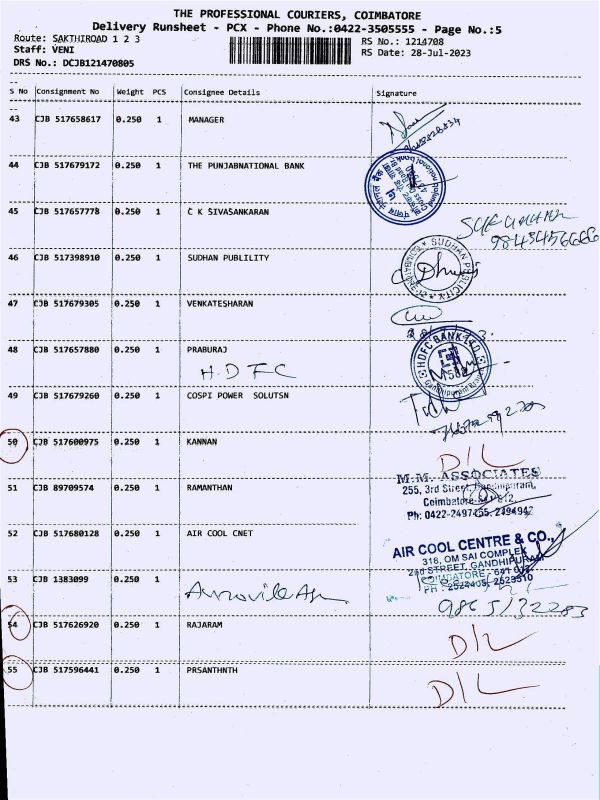 THE PROFESSIONAL COURIERS, COIMBATORE
Delivery Runsheet - PCX - Phone No.:0422-3505555 - Page No.:5
Route: SAKTHIROAD 1 2 3 RS No.: 1214708
Staff: VENI RS Date: 28-Jul-2023
DRS No.: DCJB121470805
S No Consignment No Weight PCS Consignee Details Signature
43 CJB 517658617 0.250 1 MANAGER
44 CJB 517679172 0.250 1 THE PUNJABNATIONAL BANK
45 CJB 517657778 0.250 1 C K SIVASANKARAN
9843456666
46 CJB 517398910 0.250 1 SUDHAN PUBLILITY
SUDHAN PUBLICITY
47 CJB 517679305 0.250 1 VENKATESHARAN
48 CJB 517657880 0.250 1 PRABURAJ
H.D.F.C
HDFC BANK LTD.
49 CJB 517679260 0.250 1 COSPI POWER SOLUTSN
50 CJB 517600975 0.250 1 KANNAN
D/L
51 CJB 89709574 0.250 1 RAMANTHAN
M.M. ASSOCIATES
255, 3rd Street,
Ph: 0422-2497455, 2494942
52 CJB 517680128 0.250 1 AIR COOL CNET
AIR COOL CENTRE & CO.,
318, OM SAI COMPLEX
2nd STREET, GANDHIPURAM
COIMBATORE - 641 012
53 CJB 1383099 0.250 1
9865132283
54 CJB 517626920 0.250 1 RAJARAM
D/L
55 CJB 517596441 0.250 1 PRSANTHNTH
D/L